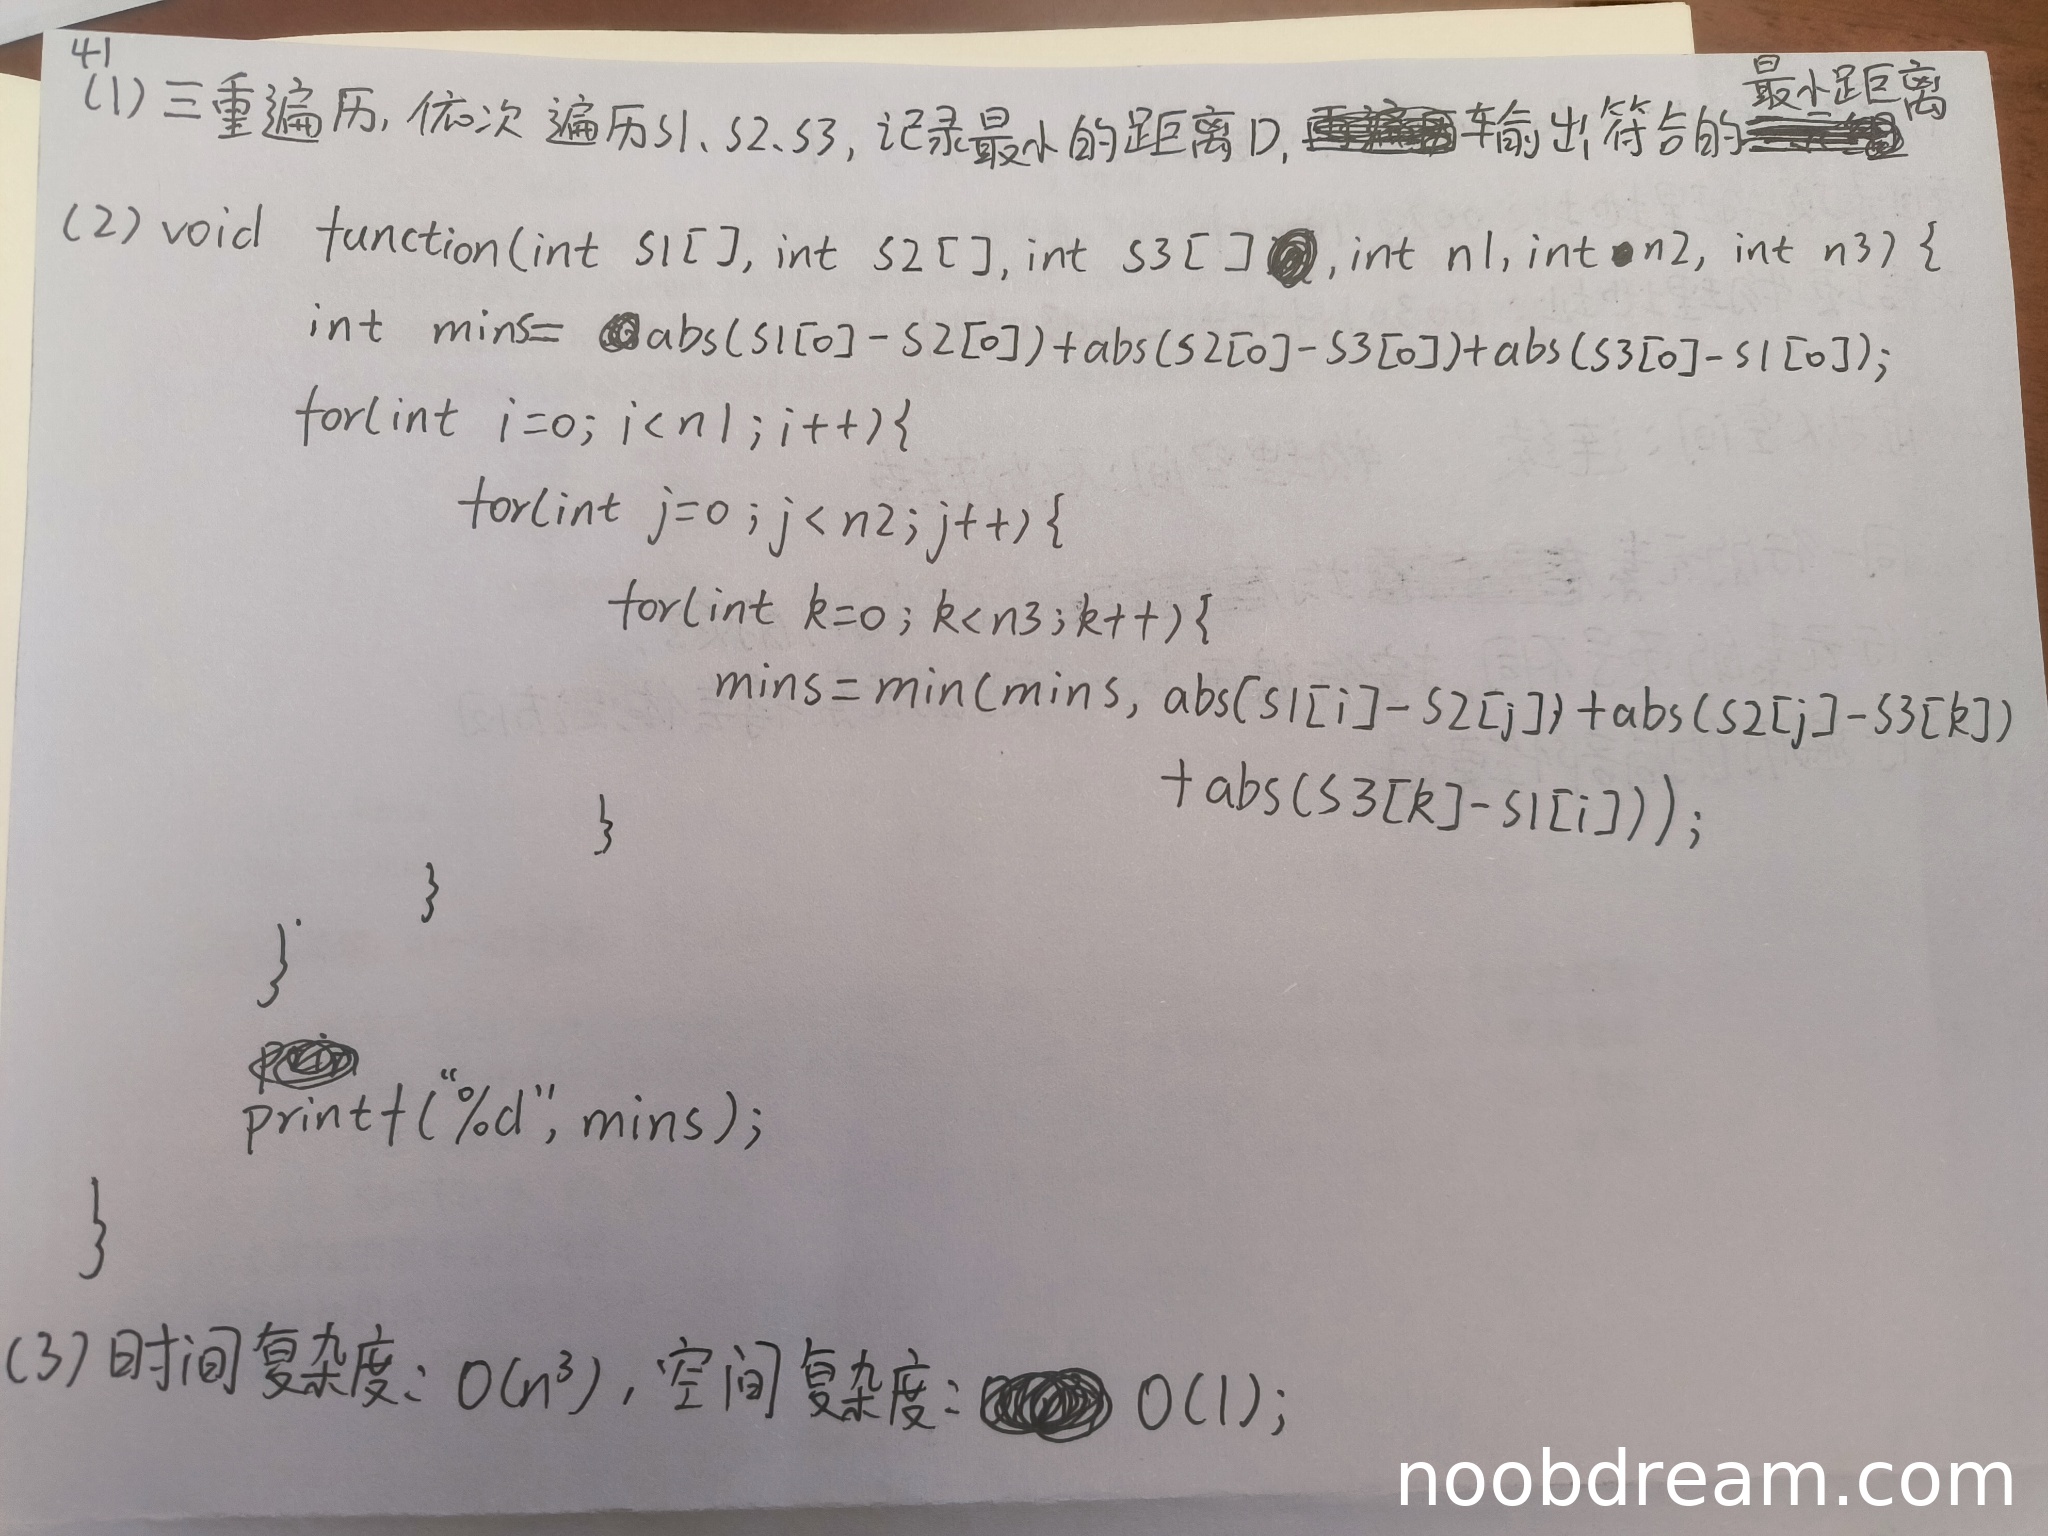 41
(1)三重遍历,依次遍历S1、S2、S3,记录最小的距离D,输出符合的最小距离
(2) void function(int S1[], int S2[], int S3[], int n1, int n2, int n3){
int mins= abs(S1[0]-S2[0])+abs(S2[0]-S3[0])+abs(S3[0]-S1[0]);
for(int i=0; i<n1; i++){
for(int j=0; j<n2; j++){
for(int k=0; k<n3; k++){
mins=min(mins, abs(S1[i]-S2[j])+abs(S2[j]-S3[k])
+abs(S3[k]-S1[i]));
}
}
}
printf("%d", mins);
}
(3)时间复杂度: O(n³), 空间复杂度: O(1);
noobdream.com